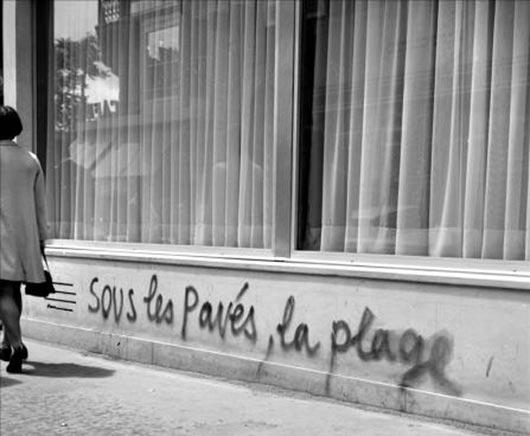 sous les Pavés, la plage